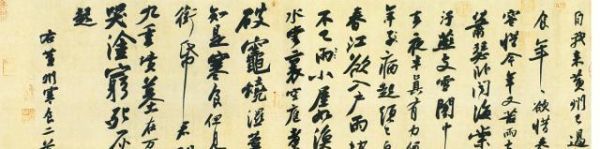 自我來黃州已過
食年〻欲惜春
容惜今年又苦雨
蕭瑟臥聞海棠
污燕支雪闇中
夜半真有力
年子病起頭已
春江欲入戶雨
不已雨小屋如漁
水雲裏空庖煮
破竈燒濕葦
知是寒食但見
銜帋君門
九重墳墓在万
哭塗窮死灰
起
右黃州寒食二首